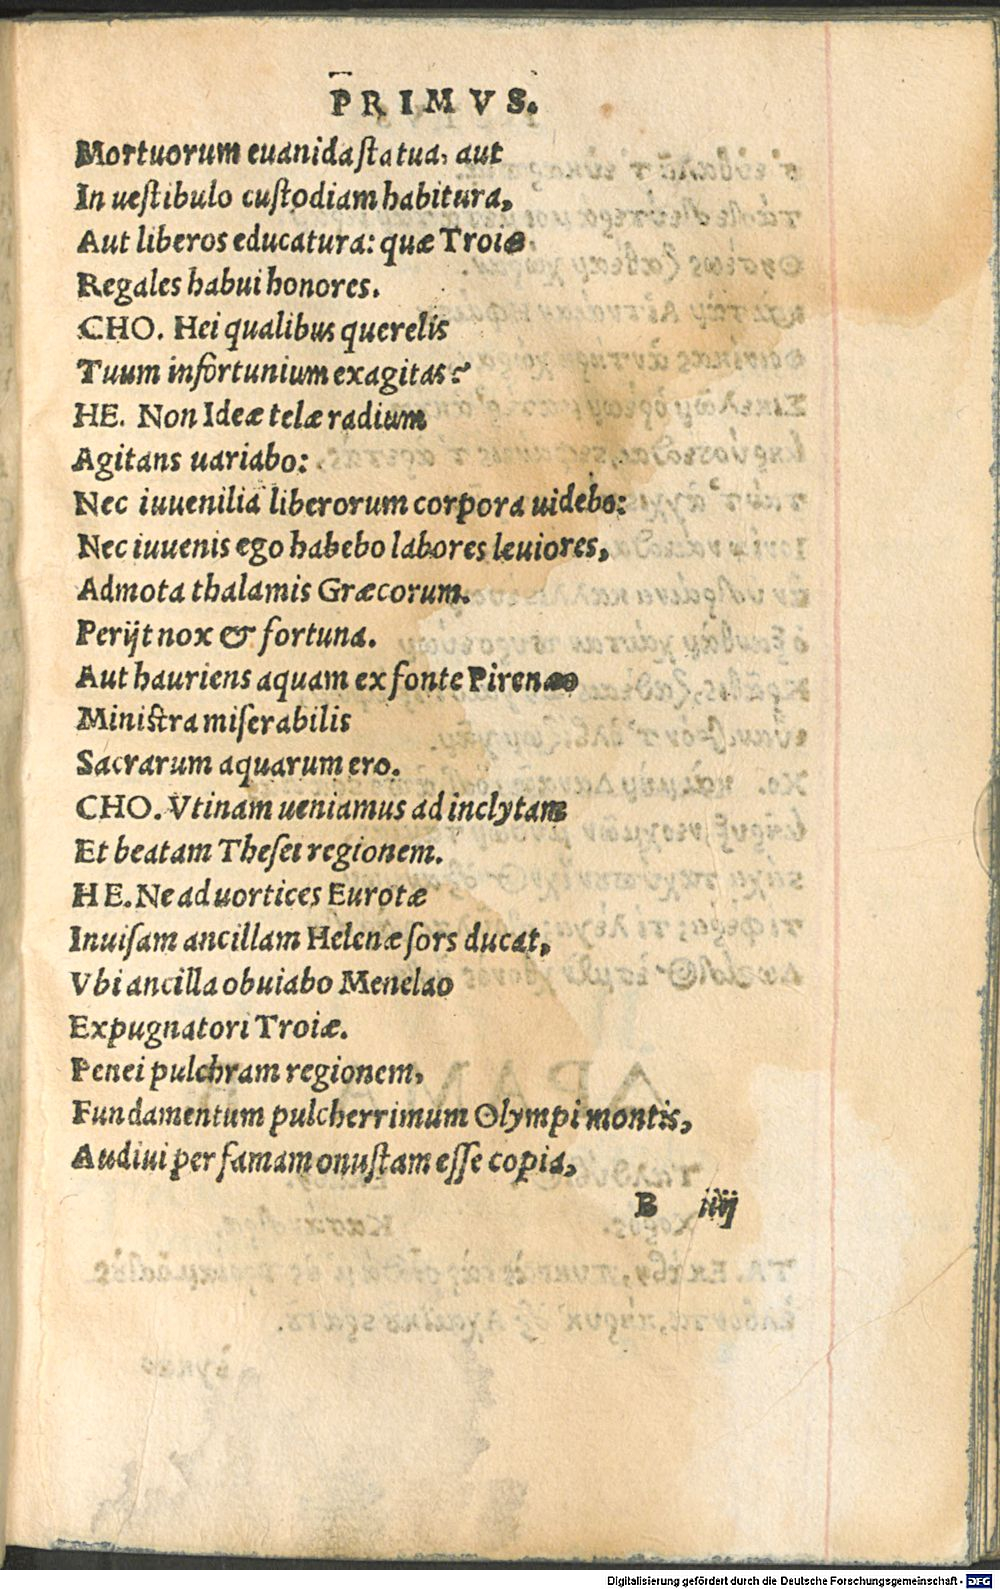 PRIMVS.
Mortuorum euanida statua, aut
In uestibulo custodiam habitura,
Aut liberos educatura: quæ Troiæ
Regales habui honores.
CHO. Hei qualibus querelis
Tuum infortunium exagitas?
HE. Non Ideæ telæ radium
Agitans uariabo:
Nec iuuenilia liberorum corpora uidebo:
Nec iuuenis ego habebo labores leuiores,
Admota thalamis Græcorum.
Perijt nox & fortuna.
Aut hauriens aquam ex fonte Pirenæo
Ministra miserabilis
Sacrarum aquarum ero.
CHO. Vtinam ueniamus ad inclytam
Et beatam Thesei regionem.
HE. Ne ad uortices Eurotæ
Inuisam ancillam Helenæ sors ducat,
Vbi ancilla obuiabo Menelao
Expugnatori Troiæ.
Penei pulchram regionem,
Fundamentum pulcherrimum Olympi montis,
Audiui per famam onustam esse copia,
B iiij
Digitalisierung gefördert durch die Deutsche Forschungsgemeinschaft - DFG